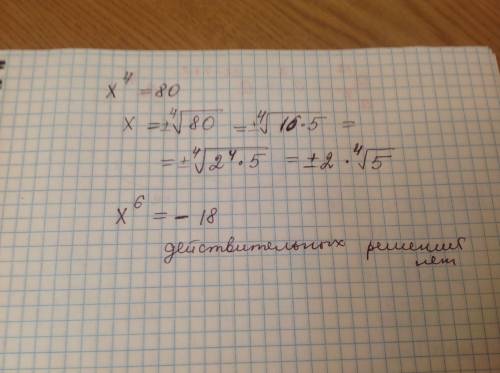 x⁴ = 80
x = ±⁴√80 = ±⁴√16·5 =
= ±⁴√2⁴·5 = ±2·⁴√5
x⁶ = - 18
действительных решений
нет